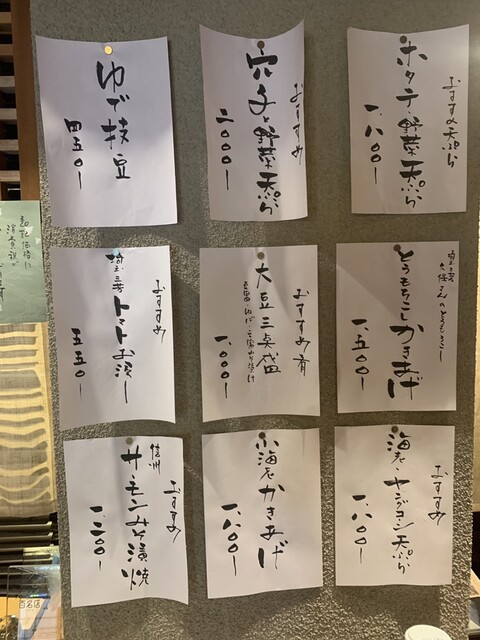 おすすめ天ぷら
ホタテ・野菜天ぷら
一、八〇〇ー
おすすめ
穴子と野菜天ぷら
二〇〇〇ー
ゆで枝豆
四五〇ー
埼玉三芳
さんのとうもろこし
とうもろこしかきあげ
一、五〇〇ー
おすすめ肴
大豆三点盛
一、〇〇〇ー
おすすめ
埼玉三芳
トマトお浸し
五五〇ー
おすすめ
海老・ヤングコーン天ぷら
一、八〇〇ー
小海老かきあげ
一、八〇〇ー
おすすめ
信州
サーモンみそ漬焼
一、二〇〇ー
百名店